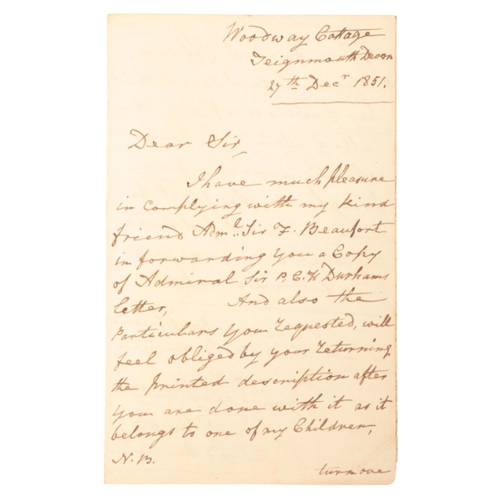 Woodway Cottage
Teignmouth Devon
27th Decr 1851.
Dear Sir,
I have much pleasure
in complying with my kind
friend Adml. Sir F. Beaufort
in forwarding you a Copy
of Admiral Sir P. C. H Durhams
letter, And also the
Particulars you requested, will
feel obliged by your returning
the printed description after
you are done with it as it
belongs to one of my Children,
N.B.
turn over